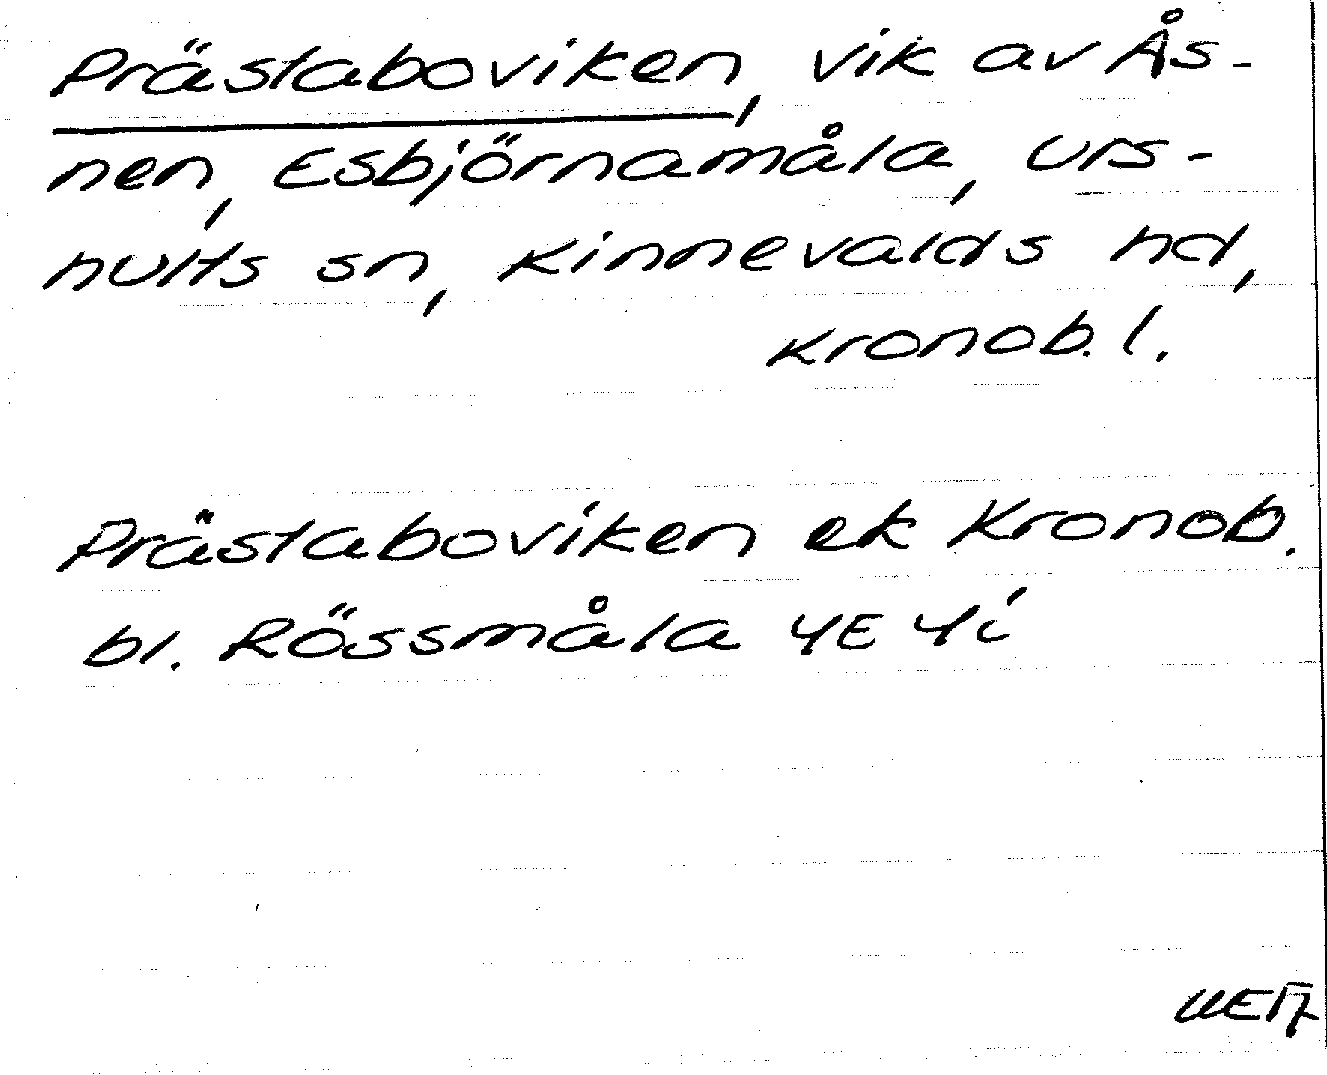 Prästaboviken, vik av Ås-
nen, Esbjörnamåla, Urs-
hults sn, Kinnevalds hd,
Kronob. l.
Prästaboviken ek Kronob.
bl. Rössmåla 4E 4i